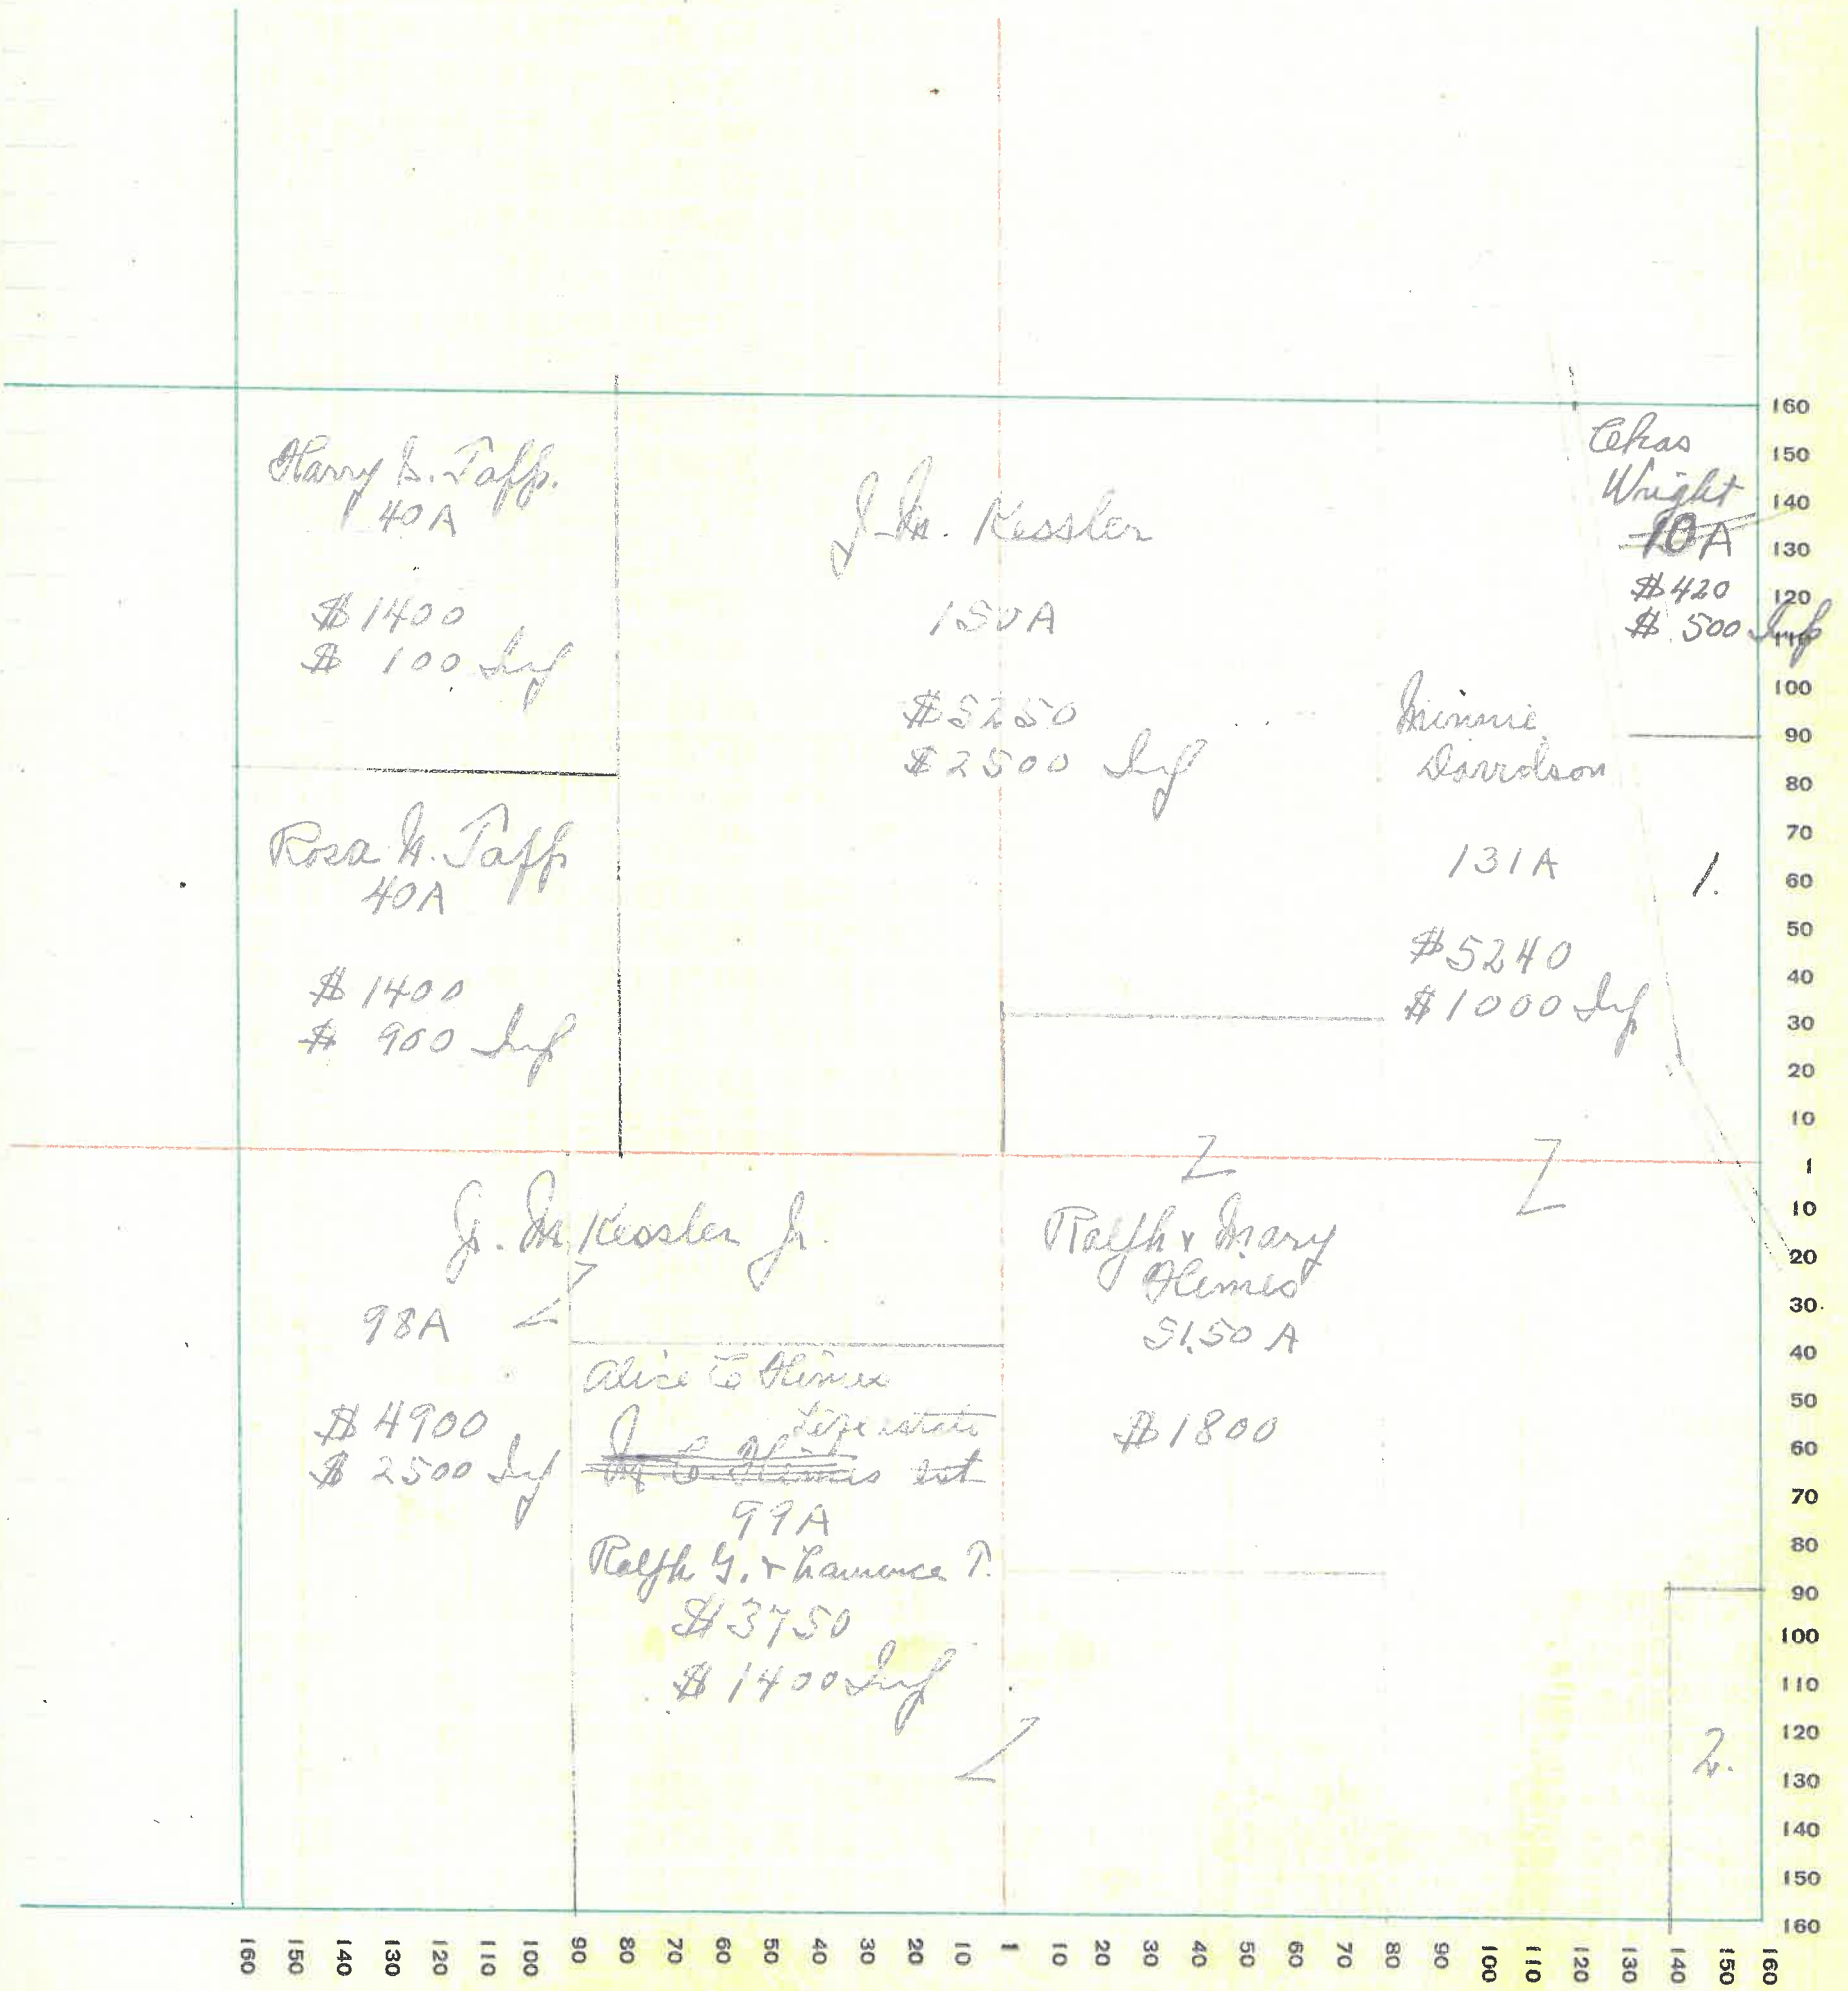 Harry S. Tapp.
40A
$1400
$ 100 Imp
J. M. Kessler
150A
$5250
$2500 Imp
Chas
Wright
10A
$420
$ 500 Imp
Minnie
Davidson
131A
$5240
$1000 Imp
1.
Rosa M. Tapp
40A
$1400
$ 900 Imp
J. M. Kessler Jr.
98A
$4900
$ 2500 Imp
Alice C Himes
Life estate
C. Himes est
99A
Ralph G. & Lawrence T.
$3750
$1400 Imp
Ralph & Mary
Himes
51.50 A
$1800
2.
160
150
140
130
120
110
100
90
80
70
60
50
40
30
20
10
1
10
20
30.
40
50
60
70
80
90
100
110
120
130
140
150
160
160 150 140 130 120 110 100 90 80 70 60 50 40 30 20 10 1 10 20 30 40 50 60 70 80 90 100 110 120 130 140 150 160